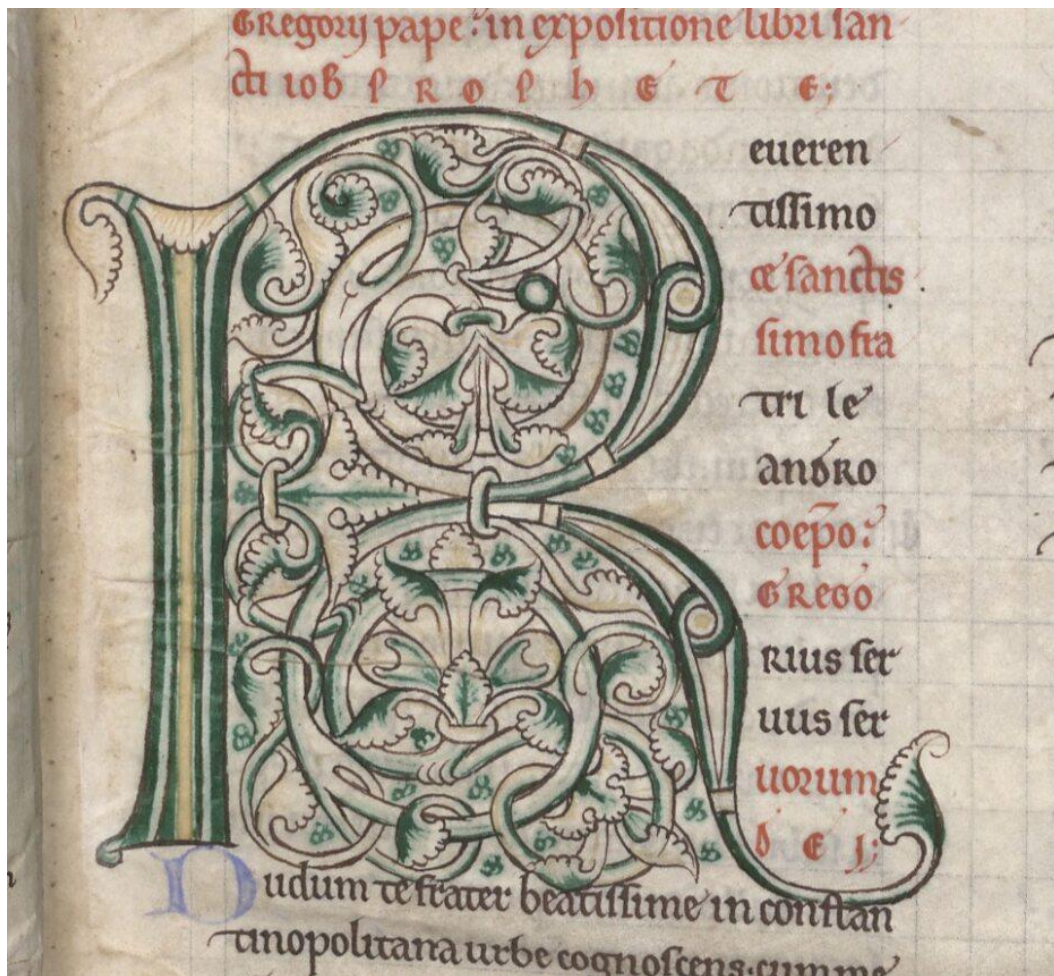 Gregorij pape: in expositione libri san
cti iob PROPHETE;
R
eueren
tissimo
& sanctis
simo fra
tri le
andro
coep̄o:
Grego
rius ser
uus ser
uorum
dej;
Dudum te frater beatissime in constan
tinopolitana urbe cognoscens. cum me